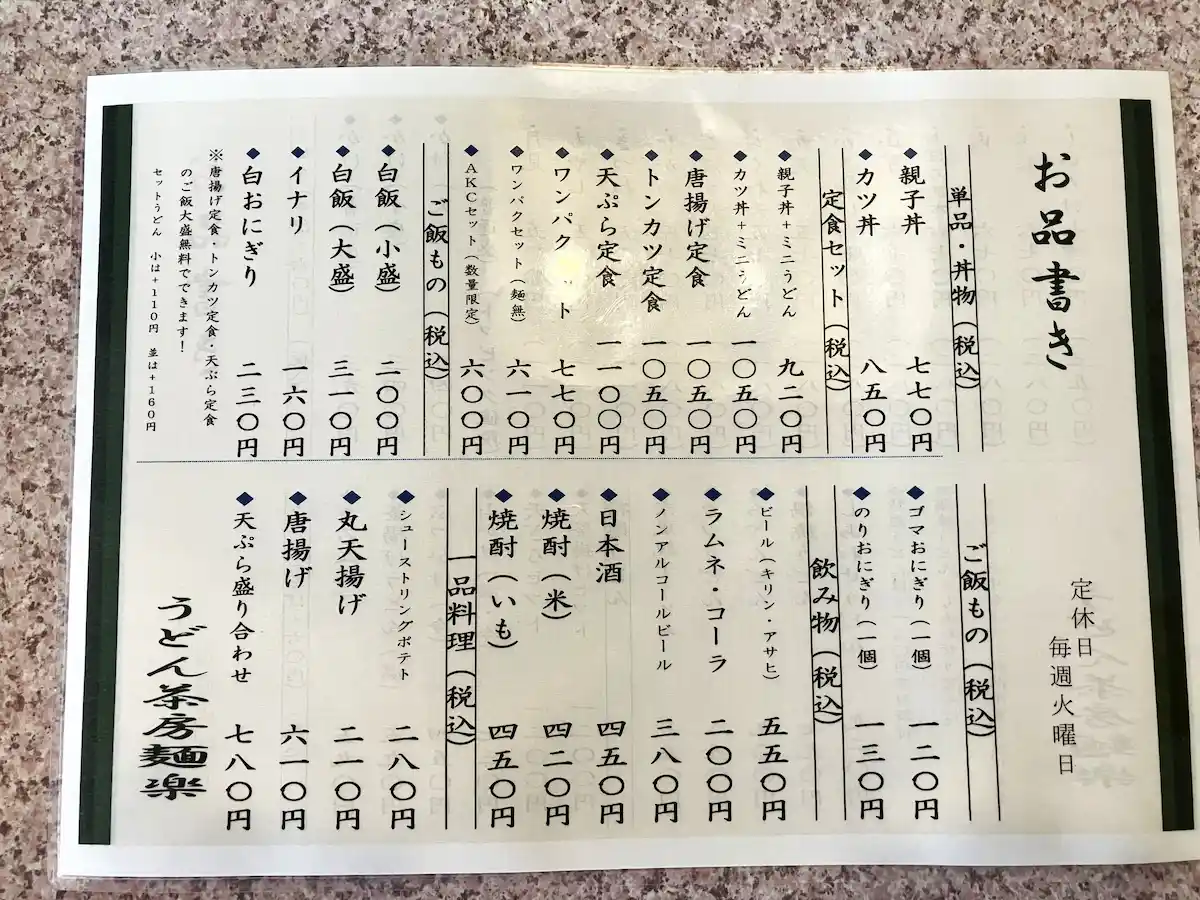 お品書き
定休日
毎週火曜日
単品・丼物（税込）
◆親子丼 七七〇円
◆カツ丼 八五〇円
定食セット（税込）
◆親子丼＋ミニうどん 九二〇円
◆カツ丼＋ミニうどん 一〇五〇円
◆唐揚げ定食 一〇五〇円
◆トンカツ定食 一〇五〇円
◆天ぷら定食 一一〇〇円
◆ワンパク ット 七七〇円
◆ワンパクセット（麺無） 六一〇円
◆AKCセット（数量限定） 六〇〇円
ご飯もの（税込）
◆白飯（小盛） 二〇〇円
◆白飯（大盛） 三一〇円
◆イナリ 一六〇円
◆白おにぎり 二三〇円
※唐揚げ定食・トンカツ定食・天ぷら定食
のご飯大盛無料でできます！
セットうどん 小は＋110円 並は＋160円
ご飯もの（税込）
◆ゴマおにぎり（一個） 一二〇円
◆のりおにぎり（一個） 一三〇円
飲み物（税込）
◆ビール（キリン・アサヒ） 五五〇円
◆ラムネ・コーラ 二〇〇円
◆ノンアルコールビール 三八〇円
◆日本酒 四五〇円
◆焼酎（米） 四二〇円
◆焼酎（いも） 四五〇円
一品料理（税込）
◆シューストリングポテト 二八〇円
◆丸天揚げ 二一〇円
◆唐揚げ 六一〇円
◆天ぷら盛り合わせ 七八〇円
うどん茶房麺楽